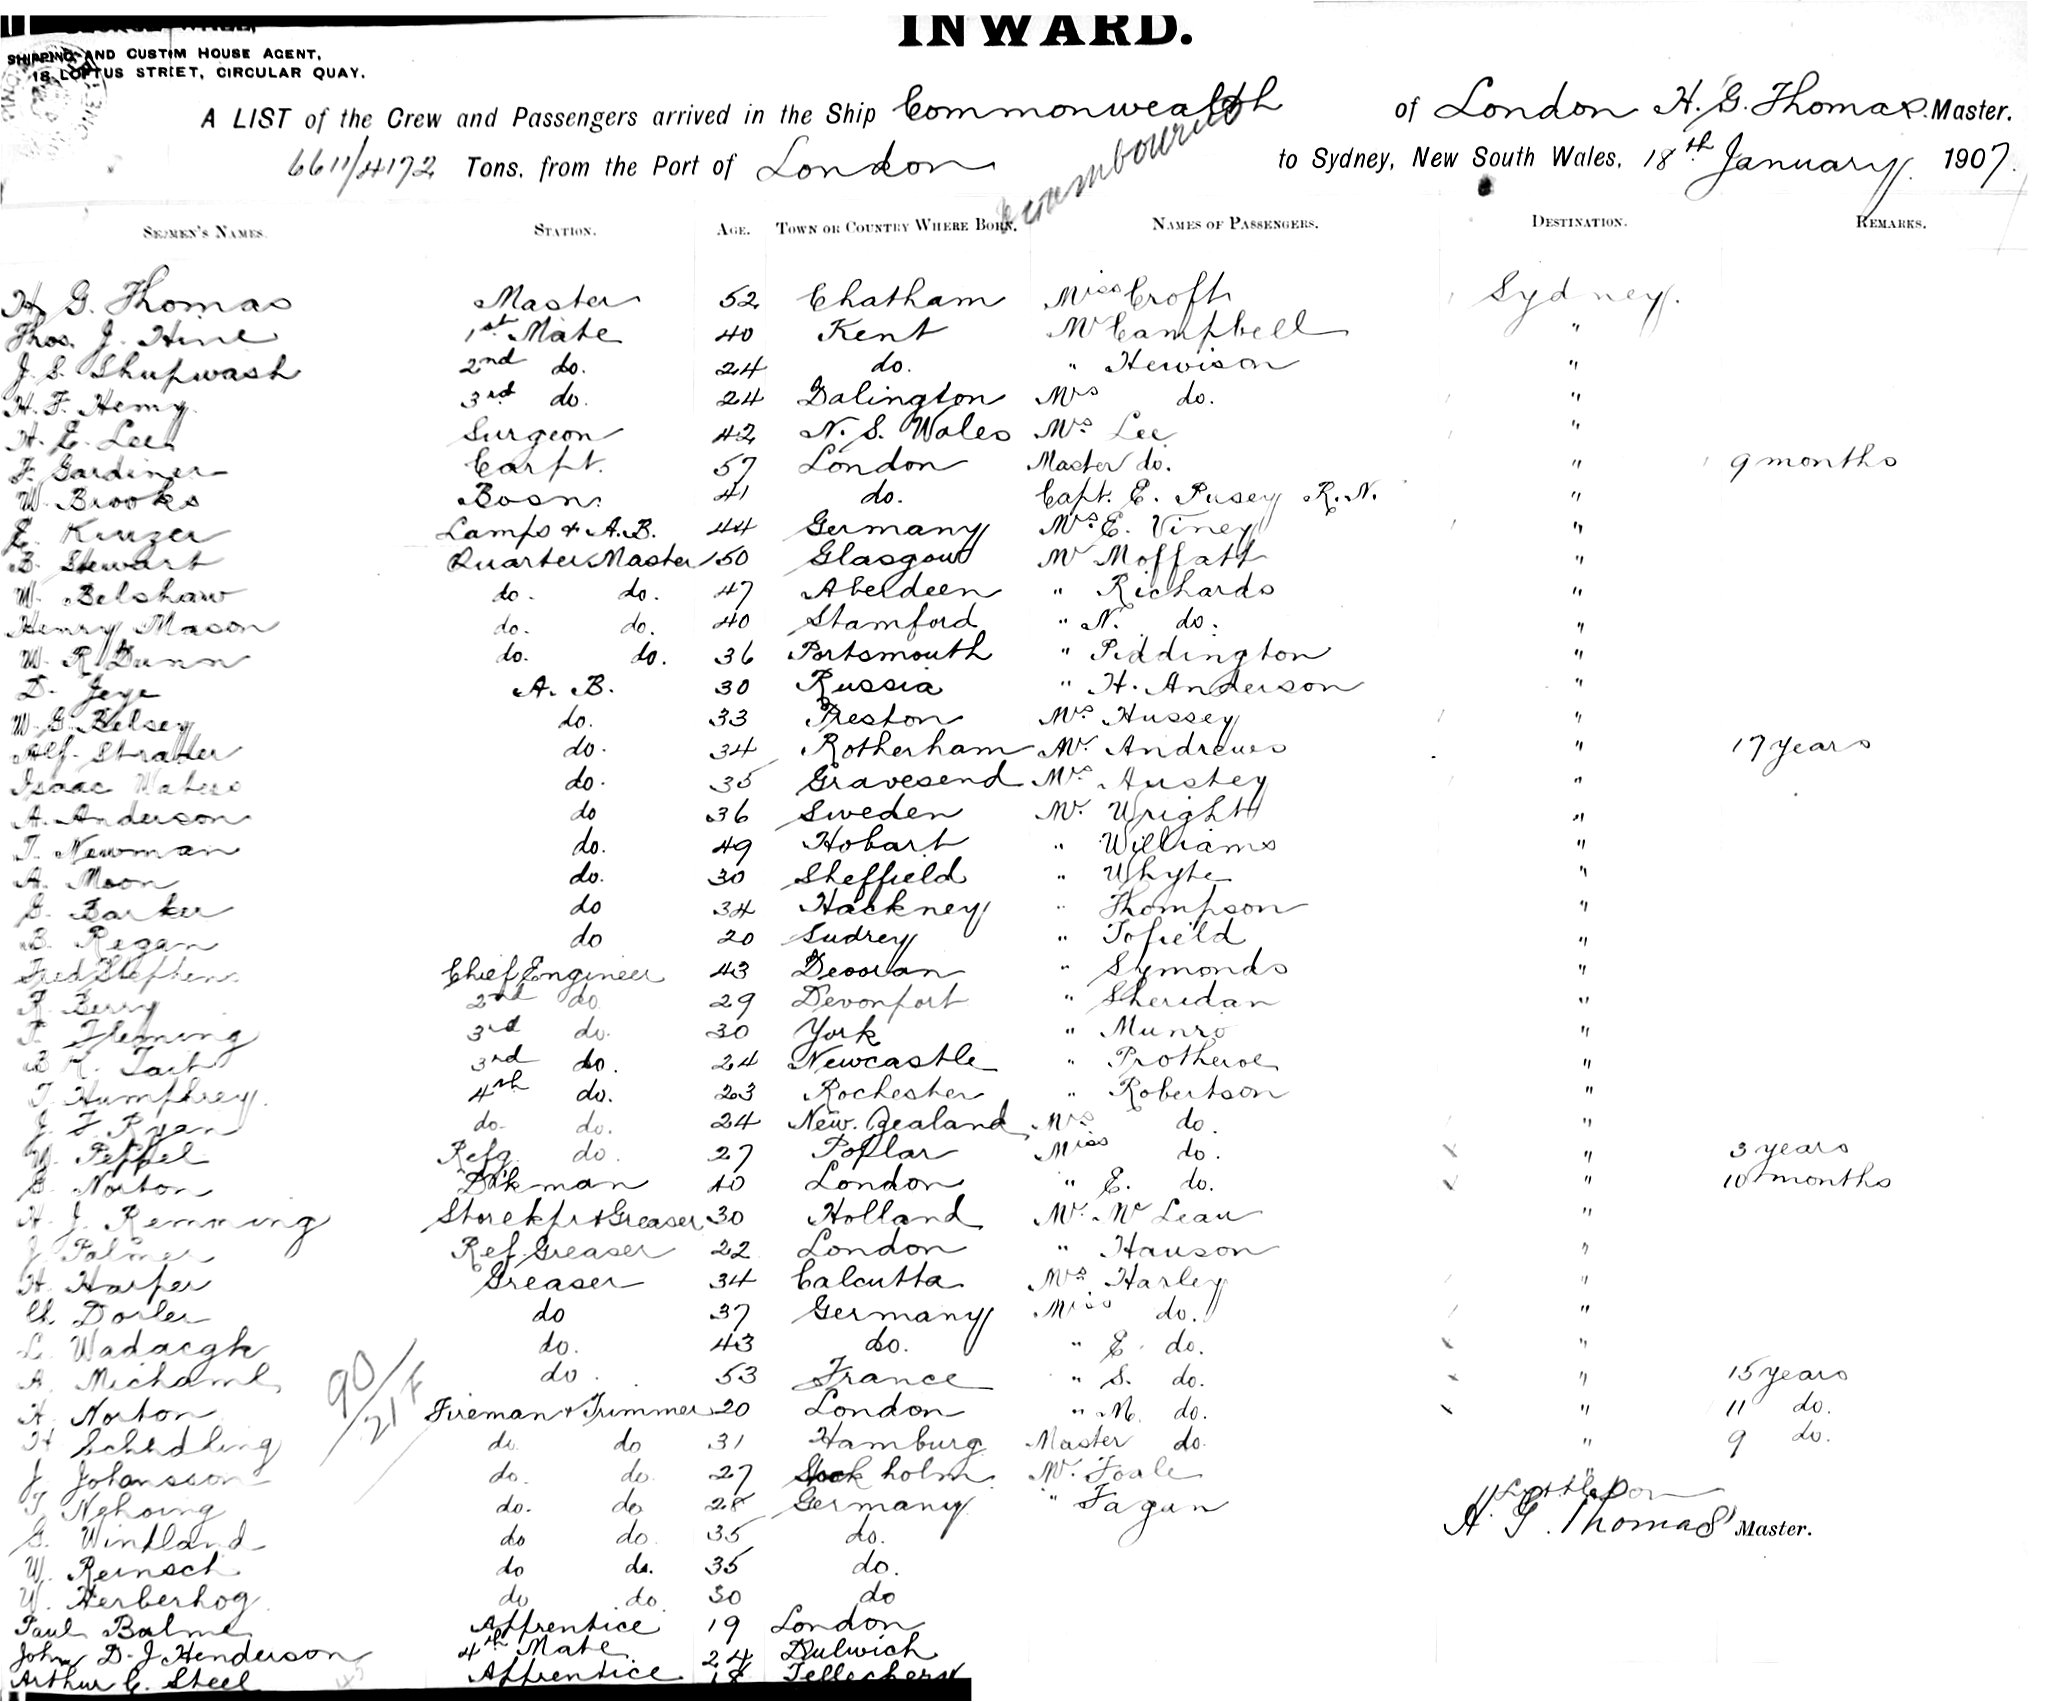 INWARD.
SHIPPING AND CUSTOM HOUSE AGENT,
18 LOFTUS STREET, CIRCULAR QUAY.
A LIST of the Crew and Passengers arrived in the Ship Commonwealth of London H. G. Thomas. Master.
6611/4172 Tons. from the Port of London to Sydney, New South Wales, 18th January 1907.
SEAMEN'S NAMES. STATION. AGE. TOWN OR COUNTRY WHERE BORN. NAMES OF PASSENGERS. DESTINATION. REMARKS.
H. G. Thomas Master 52 Chatham Miss Croft Sydney.
Thos. J. Hine 1st Mate 40 Kent Mr Campbell "
J. S. Shupwash 2nd do. 24 do. " Hewison "
H. F. Hemy 3rd do. 24 Dalington Mrs do. "
H. E. Lee Surgeon 42 N. S. Wales Mrs Lee "
F. Gardiner Carpt. 57 London Master do. " 9 months
W. Brooks Bosn. 41 do. Capt. E. Pusey R.N. "
E. Kruzer Lamps & A.B. 44 Germany Mrs E. Viney "
B. Stewart Quarter Master 50 Glasgow Mr Moffatt "
W. Belshaw do. do. 47 Aberdeen " Richards "
Henry Mason do. do. 40 Stamford " N. do. "
W. R. Dunn do. do. 36 Portsmouth " Piddington "
D. Jeye A. B. 30 Russia " H. Anderson "
W. G. Kelsey do. 33 Preston Mrs Hussey "
Alf. Strater do. 34 Rotherham Mr. Andrews " 17 years
Isaac Waters do. 35 Gravesend Mrs. Anstey "
A. Anderson do 36 Sweden Mr. Wright "
T. Newman do. 49 Hobart " Williams "
A. Moon do. 30 Sheffield " Whyte "
G. Barker do 34 Hackney " Thompson "
B. Regan do 20 Sudrey " Tofield "
Fred Stephens Chief Engineer 43 Devoran " Symonds "
R. Berry 2nd do 29 Devonport " Sheridan "
T. Fleming 3rd do. 30 York " Munro "
B R. Tait 3rd do. 24 Newcastle " Protheroe "
T. Humphrey. 4th do. 23 Rochester " Robertson "
J. F. Ryan do. do. 24 New Zealand Mrs do. "
W. Peppel Refg. do. 27 Poplar Miss do. " 3 years
G. Norton Dkman 40 London " E. do. " 10 months
H. J. Remming Storekpr & Greaser 30 Holland Mr. McLean "
J. Palmer Ref. Greaser 22 London " Hanson "
H. Harper Greaser 34 Calcutta Mrs Harley "
Ch. Dorler do 37 Germany Miss do. "
L. Wadacgk do. 43 do. " E. do. "
A. Michaml do. 53 France " S. do. " 15 years
H. Norton Fireman & Trimmer 20 London " M. do. " 11 do.
H. Schedling do do 31 Hamburg Master do. " 9 do.
J. Johansson do. do. 27 Stockholm Mr. Foale "
T. Nehoing do. do 28 Germany " Fagan
G. Wintland do do 35 do. H. G. Thomas Master.
W. Reinsch do do. 35 do.
W. Herberhog do do. 30 do
Paul Balme Apprentice 19 London
John D. J. Henderson 4th Mate 24 Dulwich
Arthur C. Steel Apprentice 18